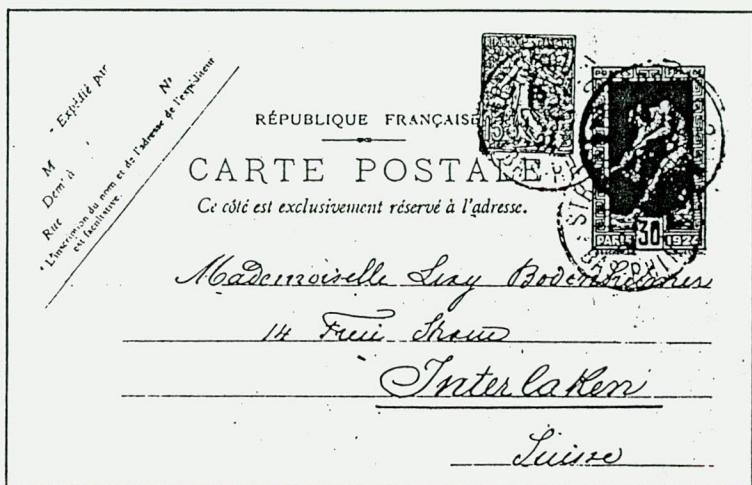 Expédié par
M
Dem.t à
Rue
N°
* L'inscription du nom et de l'adresse de l'expéditeur
est facultative.
RÉPUBLIQUE FRANÇAISE
CARTE POSTALE
Ce côté est exclusivement réservé à l'adresse.
15
PARIS 30 1924
Mademoiselle
14
Interlaken
Suisse